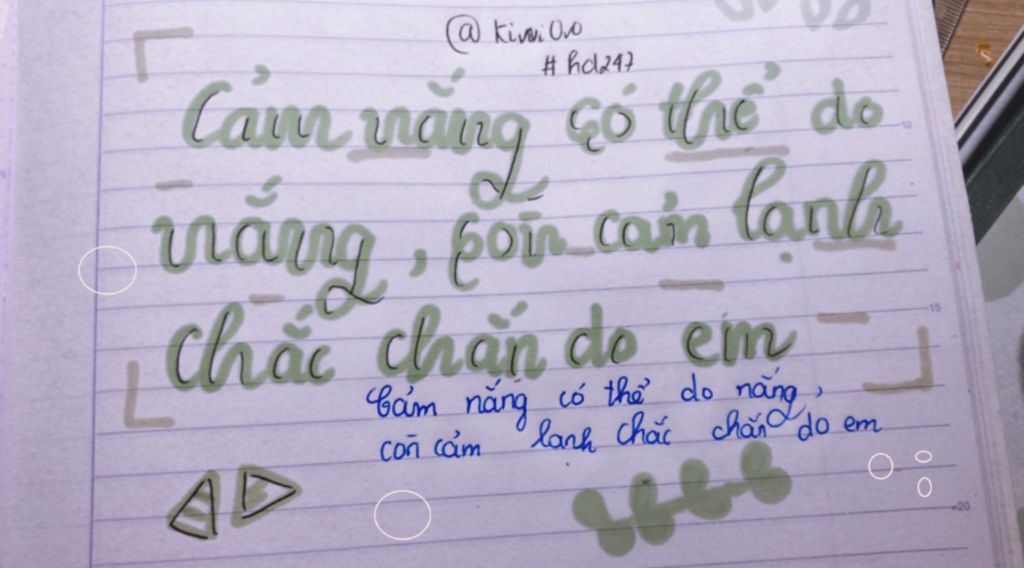 @ Kiwi 0.0
# hd247
Cảm nắng có thể do
nắng, còn cảm lạnh
chắc chắn do em
Cảm nắng có thể do nắng,
còn cảm lạnh chắc chắn do em
10
15
20